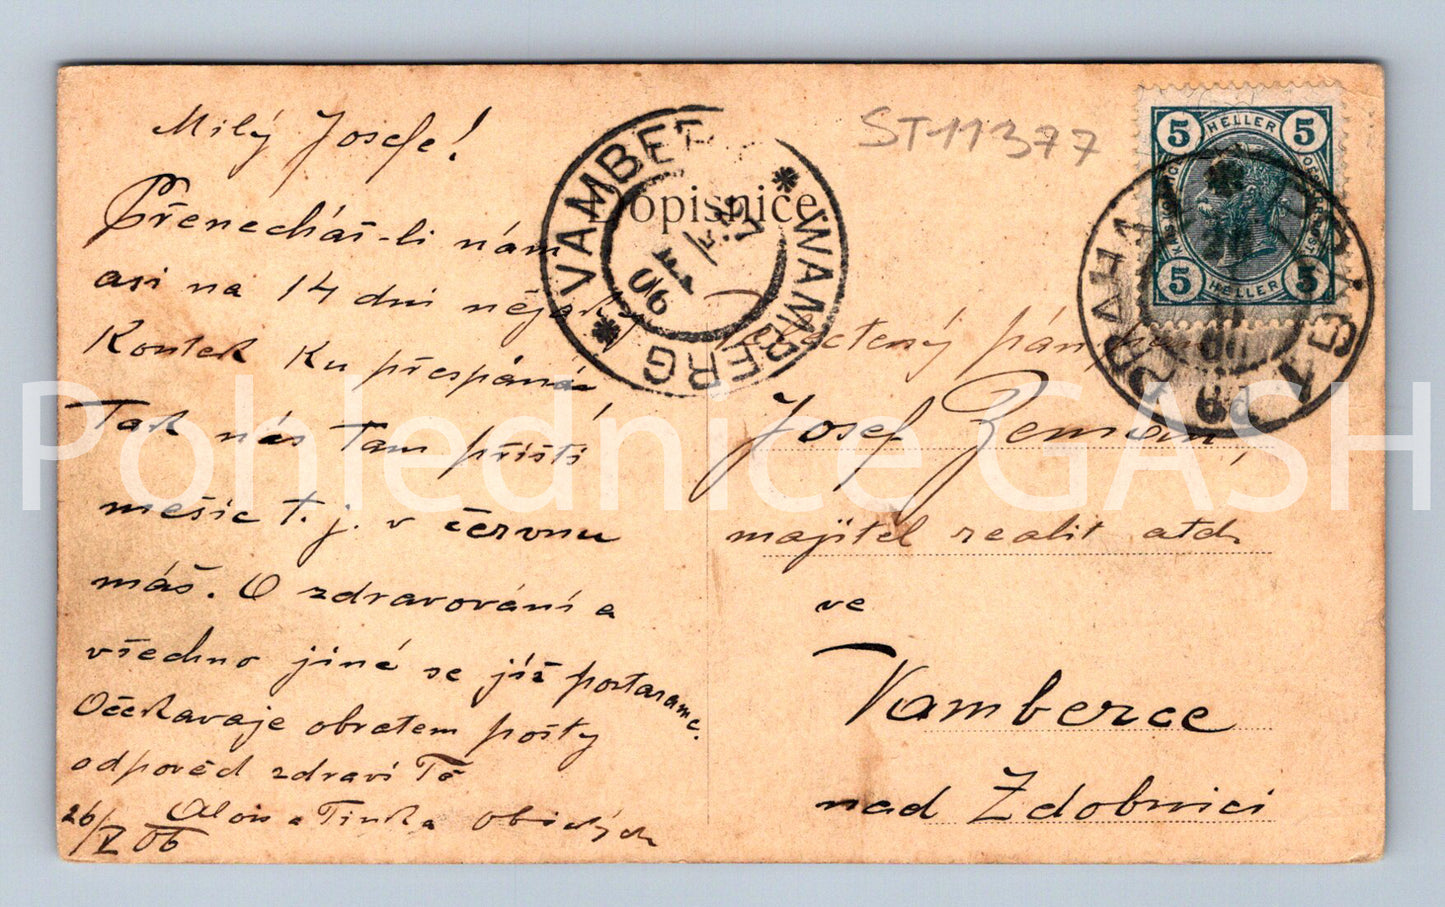 Milý Josefe!
Přenecháš-li nám
asi na 14 dní
Koutek ku přespání
Tak nás tam příští
měsíc t. j. v červnu
máš. O zdravování a
všechno jiné se již postaráme.
Očekávaje obratem pošty
odpověd zdraví Tě
26/V 06 Alois a Tinka
ST11377
Dopisnice
VAMBERK * WAMBERG *
06
5 HELLER 5
5 HELLER 5
PRAHA
Josef Zeman
majitel realit atd.
ve
Vamberce
nad Zdobnicí
Pohlednice GASH